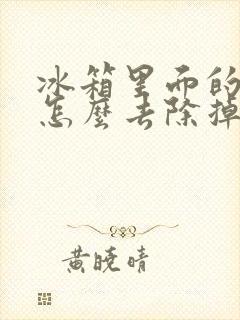 冰箱里面的
怎麼去除掉
黄曉晴